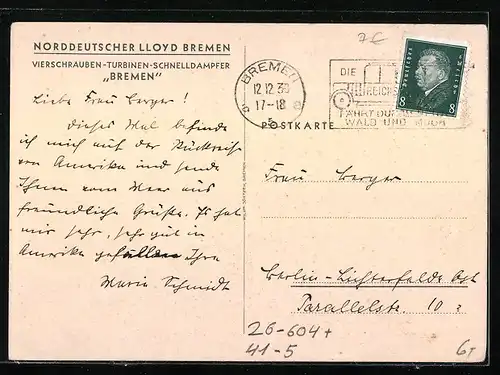 NORDDEUTSCHER LLOYD BREMEN
VIERSCHRAUBEN-TURBINEN-SCHNELLDAMPFER
„BREMEN"
Liebe Frau Berger!
Dieses Mal befinde
ich mich auf der Rückreise
von Amerika und sende
Ihnen vom Meer aus
freundliche Grüße. Es hat
mir sehr, sehr gut in
Amerika gefallen Ihre
Maria Schmidt
7€
BREMEN
12.12.30
17-18
5
DIE
REICHS
FÄHRT DURCH
WALD UND
8 8
POSTKARTE
Frau Berger
Berlin-Lichterfelde Ost
Parallelstr. 10
26-604+
41-5
6T